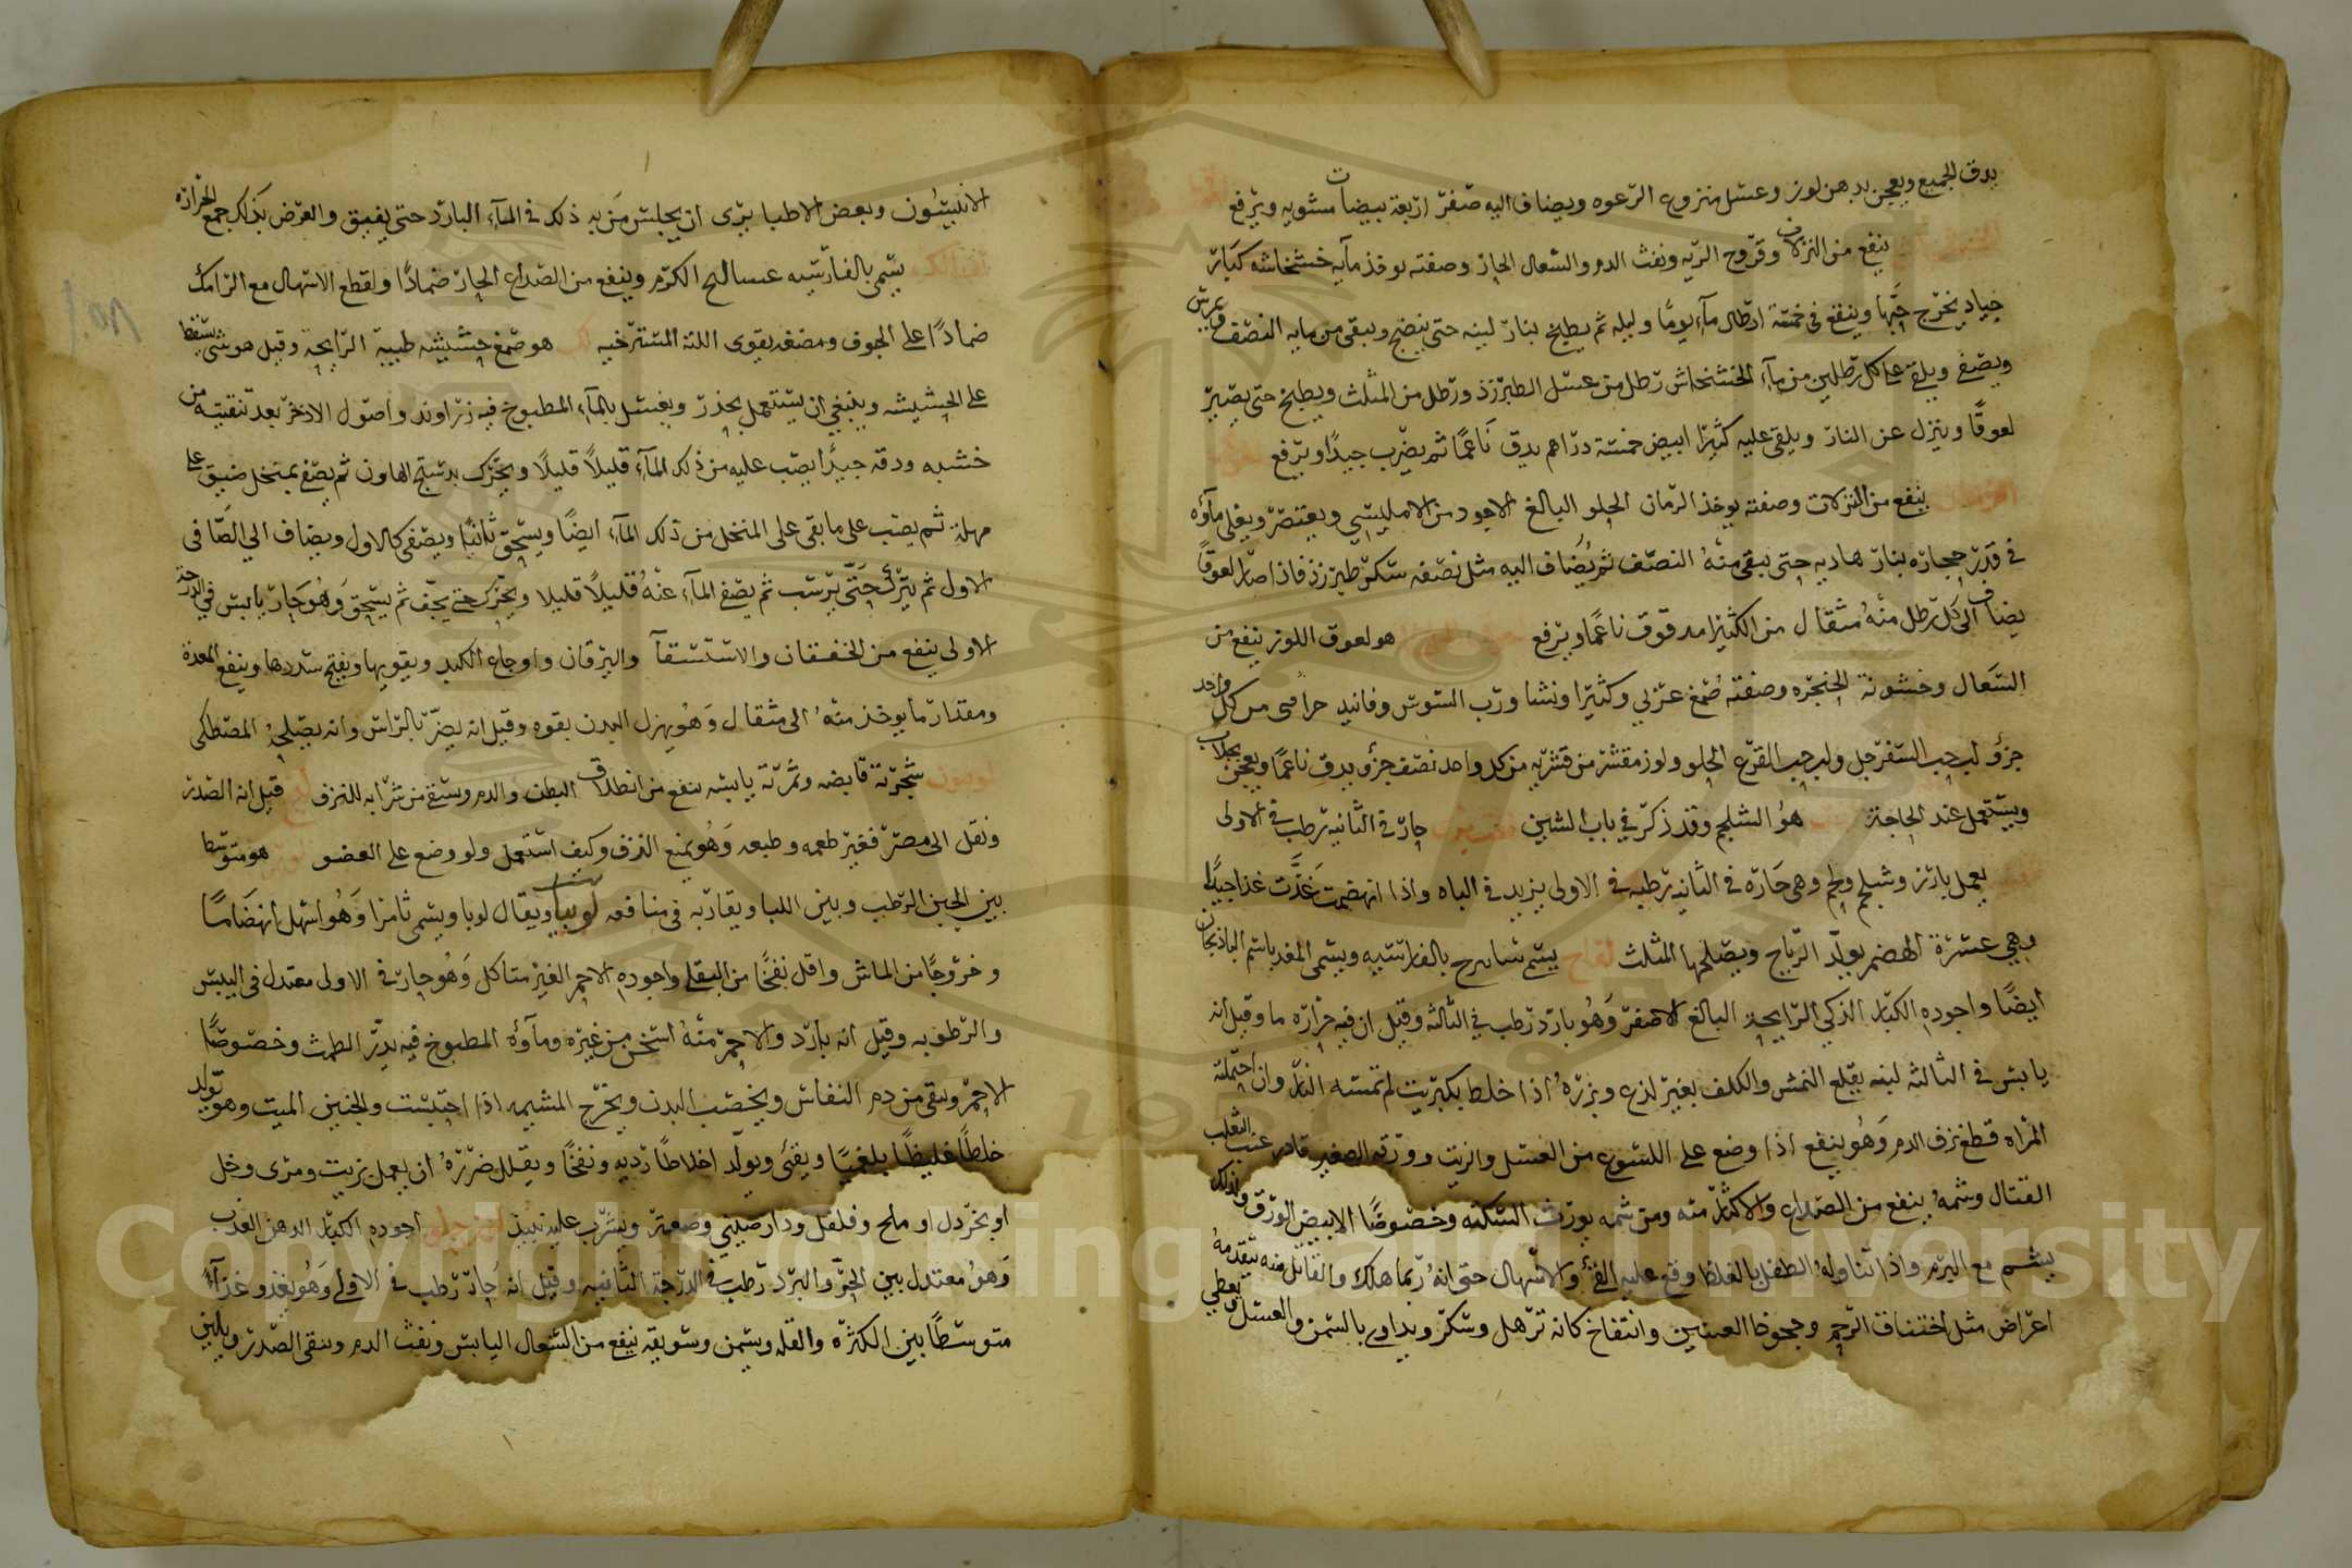 يدق الجميع ويعجن بدهن لوز وعسل منزوع الرغوه ويضاف اليه صفر اربعة بيضات مشويه ويرفع
ينفع من النزلات وقروح الريه ونفث الدم والسعال الحار وصفته يوخذ مايه خشخاشه كبار
جياد يخرج حبها وينقع في خمسة ارطال مآء يومًا وليله ثم يطبخ بنار لينه حتى ينضج ويبقى من مايه النصف ويمرس
ويصفى ويلقى على كل رطلين من مآء الخشخاش رطل من عسل الطبرزد ورطل من المثلث ويطبخ حتى يصير
لعوقًا وينزل عن النار ويلقى عليه كثيرا ابيض خمسة دراهم يدق نَاعمًا ثم يضرب جيدًا ويرفع
ينفع من النزلات وصفته يوخذ الرمان الحلو البالغ الاجود من الامليسي ويعتصر ويغلى مآؤه
في قدر حجاره بنار هاديه حتى يبقى منهُ النصف ثم يُضاف اليه مثل نصفه سكر طبرزد فاذا صار لعوقًا
يضاف الى كل رطل منهُ مثقال من الكثيرا مدقوق ناعمًا ويرفع هو لعوق اللوز ينفع من
السعال وخشونة الحنجره وصفته صمغ عربي وكثيرا ونشا ورب السوس وفانيد من كل واحد
جزؤ لب حب السفرجل ولب حب القرع الحلو ولوز مقشر من قشريه من كل واحد نصف جزؤ يدق ناعمًا ويعجن بجلاب
ويستعمل عند الحاجة هوُ الشلجم وقد ذكر في باب الشين حار في الثانيه رطب في الاولى
يعمل بارز وشلجم ولحم وهى حَارة في الثانيه رطبه في الاولى يزيد في الباه واذا انهضمت غذَّت غذا جيدًا
وهي عسرة الهضم يولد الرياح ويصلحها المثلث لفاح يسمى بالفارسيه ويسمى المغد باسم الباذنجان
ايضًا واجوده الكبار الذكي الرايحة البالغ الاصفر وَهُو بارد رطب في الثالثه وقيل ان فيه حرارَه ما وقيل انه
يابس في الثالثه لبنه يقلع النمش والكلف بغير لذع وبزرهُ اذا خلط بكبريت لم تمسه النار وان احتملته
المراه قطع نزف الدم وَهُو ينفع اذا وضع على اللسوع من العسل والزيت وورقه الصغير قادم عنب الثعلب
القتال وشمهُ ينفع من الصداع والاكثار منه ومن شمه يورث السكته وخصوصًا الابيض الورق وكذلك
يشم مع البرم واذا تناولهُ الطفل بالغلط وقع عليه القئ والاسهال حتى انهُ ربما هلك والقاتل منه يتقدمهُ
اعراض مثل اختناق الرحم وجحوظ العينين وانتفاخ كانه ترهل وسكر ويداوى بالسمن والعسل ويعطي
الانيسُون وبعض الاطبا يرى ان يجلس مَن به ذلك في المآء البارد حتى يفيق والغرض بذلك جمع الحرارة
يسمى بالفارسيه عساليج الكرم وينفع من الصداع الحار ضمادًا ولقطع الاسهال مع الرامك
ضمادًا على الجوف ومضغه يقوى اللثة المسترخيه لك هو صمغ حشيشه طيبة الرايحة وقيل هو شئ يسقط
على الحشيشه وينبغي ان يستعمل بحذر ويغسل بالمآء المطبوخ فيه زراوند واصول الاذخر بعد تنقيته من
خشبه ودقه جيدًا يصب عليه من ذلك المآء قليلاً قليلاً ويحرك بدستج الهاون ثم يصفى بمنخل ضيق على
مهلة ثم يصب على ما بقى على المنخل من ذلك المآء ايضًا ويسحق ثانيًا ويصفى كالاول ويضاف الي الصَافى
الاول ثم يترك حَتَّى يرسب ثم يصفى المآء عنهُ قليلاً قليلا ويحرك حتى يجف ثم يسحق وَهُو حَار يابس في الدرجة
الاولى ينفع من الخفقان والاستسقآ واليرقان واوجاع الكبد ويقويها ويفتح سددها وينفع المعدة
ومقدار ما يوخذ منهُ الى مثقال وَهُو يهزل البدن بقوه وقيل انه يضر بالراس وانه يصلحهُ المصطكى
شجرته قابضه وثمرته يابسه تنفع من انطلاق البطن والدم ويسقى من شرابه للنزف لبخ قيل انه السدر
ونقل الى مصر فغير طعمه وطبعه وَهُو يمنع النزف وكيف استعمل ولو وضع على العضو هو متوسط
بين الجبن الرطب وبين اللبا ويقاربه في منافعه لوبيا ويقال لوبا ويسمى ثامرا وَهُو اسهل انهضَامًا
وخروجًا من الماش واقل نفخًا من البقلا واجوده الاحمر الغير متاكل وَهُو حار في الاولى معتدل في اليبس
والرطوبه وقيل انه بارد والاحمر منهُ اسخن من غيره ومآؤه المطبوخ فيه يدر الطمث وخصوصًا
الاحمر وينقى من دم النفاس ويخصب البدن ويخرج المشيمه اذا احتبست والجنين الميت وهو يولد
خلطًا غليظًا بلغميًا ويغثى ويولد اخلاطًا رديه ونفخًا ويقلل ضررهُ ان يعمل بزيت ومرى وخل
او بخردل او ملح وفلفل ودارصيني وصعتر ويشرب عليه نبيذ اجوده الكبار الدهن العذب
وَهوُ معتدل بين الحر والبرد رطب في الدرجة الثانيه وقيل انه حَار رطب في الاولى وَهُو يغذو غذآءً
متوسطًا بين الكثره والقله ويسمن وسويقه ينفع من السعال اليابس ونفث الدم وينقى الصدر ويلين
Copyright © King Saud University
1957